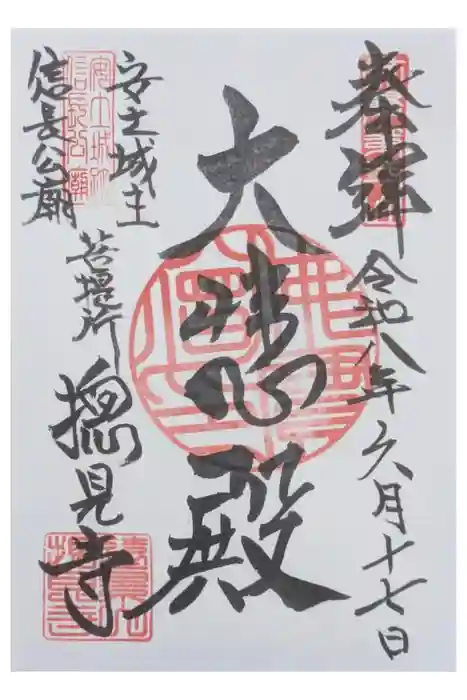 奉拝
令和八年六月十七日
大悲殿
安土城主
信長公廟
菩提所
摠見寺
安土城址
信長公廟